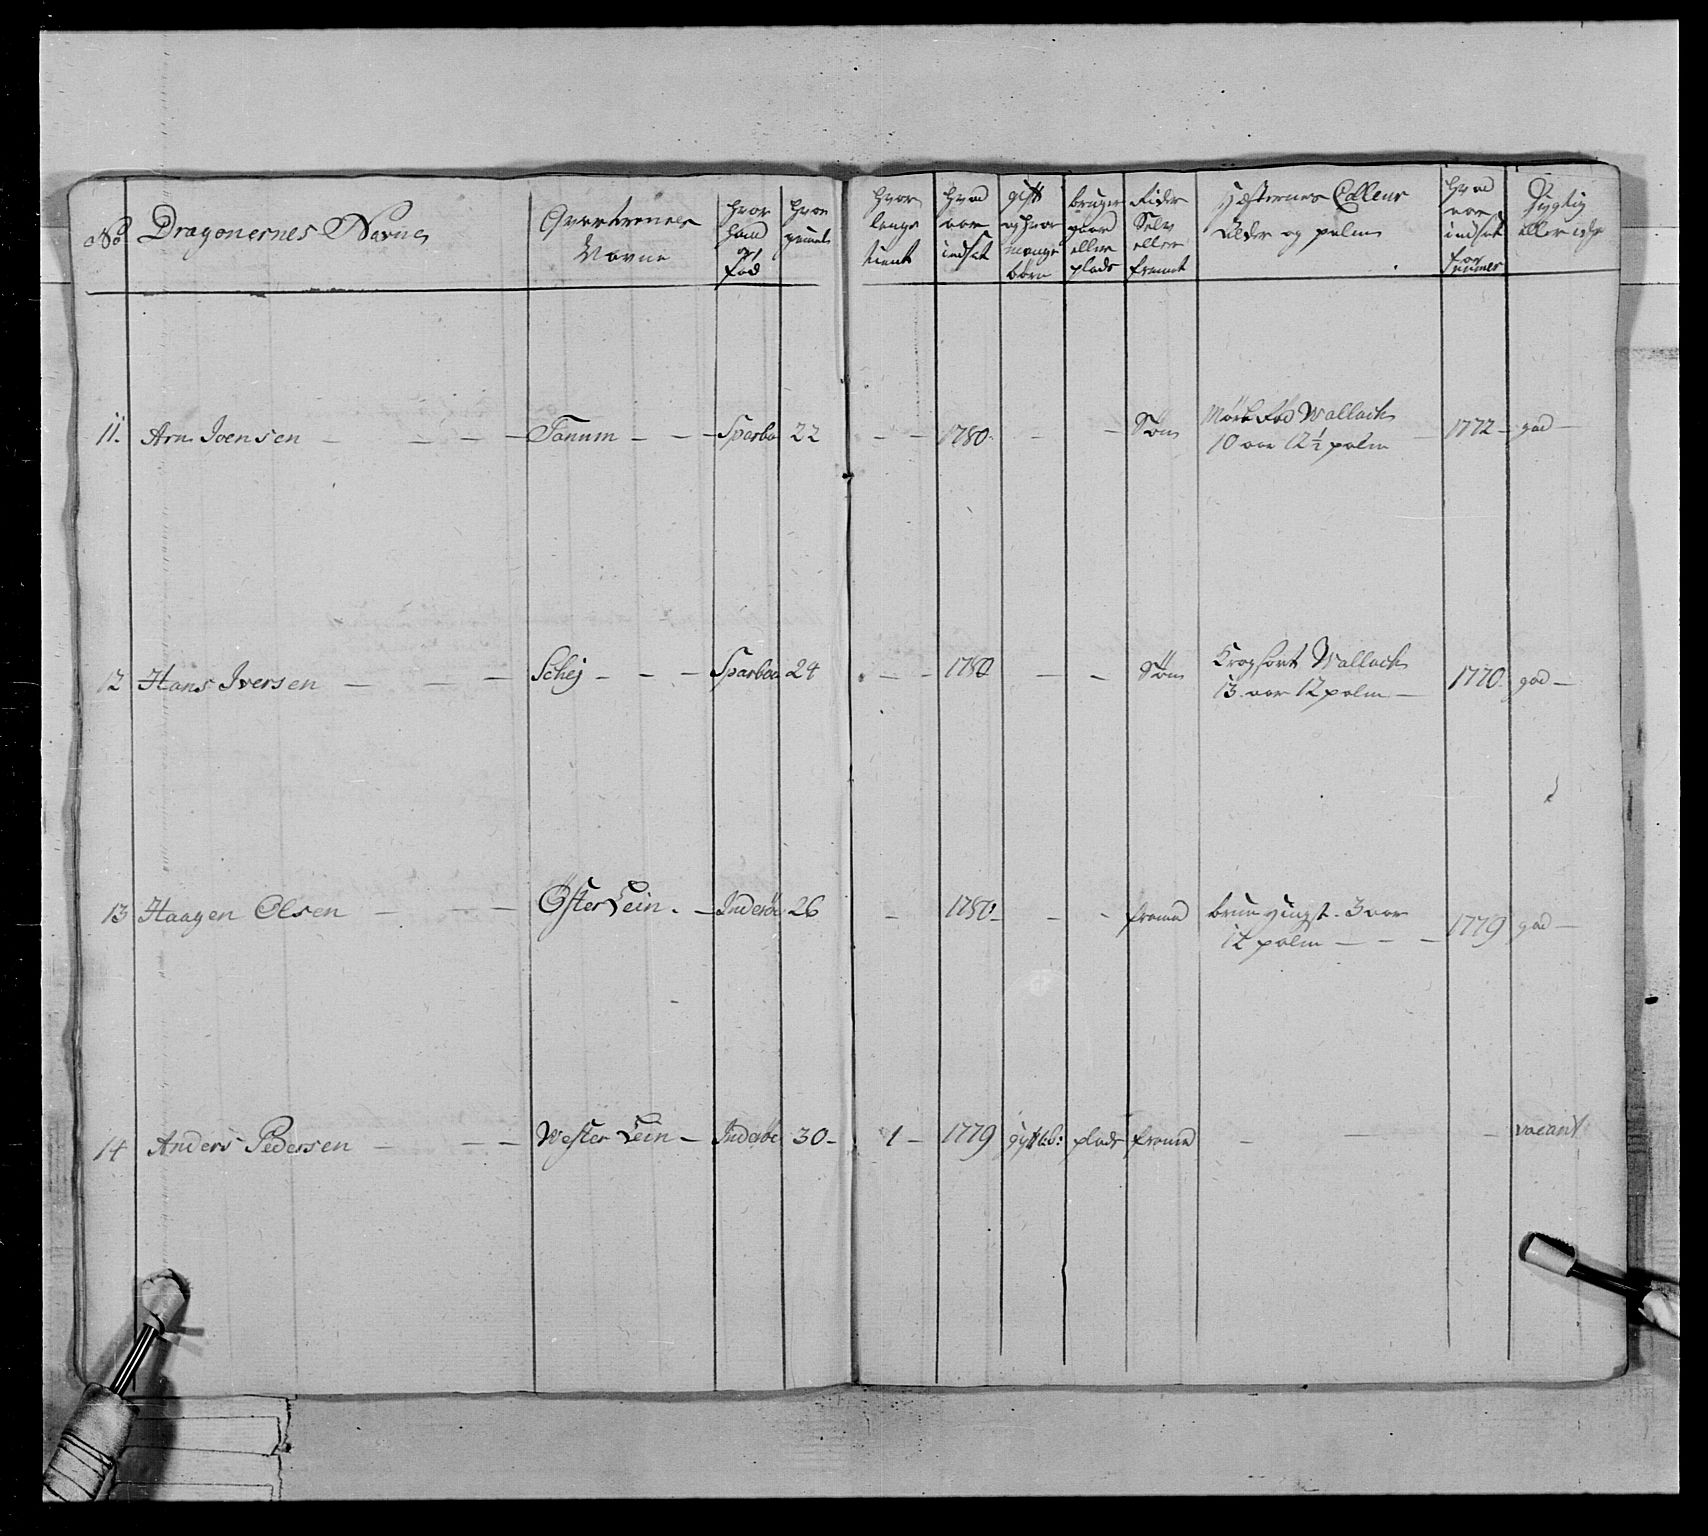 No Dragonernes Navne Qvarterenes Navne hvor hand er fød hvor gamel hvor lenge tient hvad aar indsat gift og hvor mange børn bruger gaard eller plads Rider Selv eller fremt Hæsternes Colleur Alder og palm hvad aar indsat for numer Dygtig eller ickje
11. Arn Joensen — — — — Tanum — — — Sparbo 22 — — 1780. — — Søn Mørk Rød Wallach 10 aar 12½ palm — 1772 — god —
12 Hans Iversen — — — Schej — — — Sparboe 24 — — 1780 — — Søn Kragsort Wallach 13 aar 12 palm — 1770. god —
13 Haagen Olsen — — — Öster Lein. — Inderøe 26 — 1780 — — — fremd brun hingst. 3 aar 12 palm — — — 1779 god —
14 Anders Pedersen — — — Wester Lein — Inderøe 30 — 1 — 1779 plads fremd — — — vacant